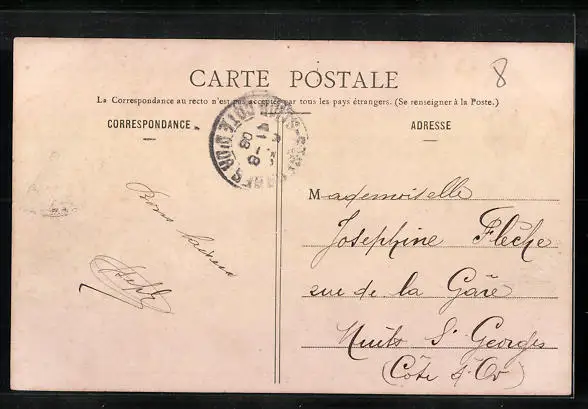 8
CARTE POSTALE
La Correspondance au recto n'est pas acceptée par tous les pays étrangers. (Se renseigner à la Poste.)
CORRESPONDANCE
ADRESSE
CÔTE D'OR
08
Bons baisers
Mademoiselle
Joséphine Flèche
rue de la Gare
Nuits St Georges
(Côte d'Or)